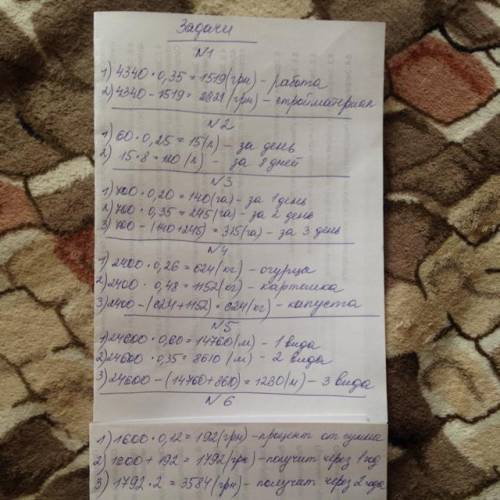 Задачи
N1
1) 4340 · 0,35 = 1519 (грн) - работа
2) 4340 - 1519 = 2821 (грн) - стройматериал
N2
1) 60 · 0,25 = 15 (л) - за день
2) 15 · 8 = 120 (л) - за 8 дней
N3
1) 700 · 0,20 = 140 (га) - за 1 день
2) 700 · 0,35 = 245 (га) - за 2 день
3) 700 - (140 + 245) = 315 (га) - за 3 день
N4
1) 2400 · 0,26 = 624 (кг) - огурцы
2) 2400 · 0,48 = 1152 (кг) - картошка
3) 2400 - (624 + 1152) = 624 (кг) - капуста
N5
1) 24600 · 0,60 = 14760 (м) - 1 вида
2) 24600 · 0,35 = 8610 (м) - 2 вида
3) 24600 - (14760 + 860) = 1230 (м) - 3 вида
N6
1) 1600 · 0,12 = 192 (грн) - процент от суммы
2) 1600 + 192 = 1792 (грн) - получит через 1 год
3) 1792 · 2 = 3584 (грн) - получит через 2 года